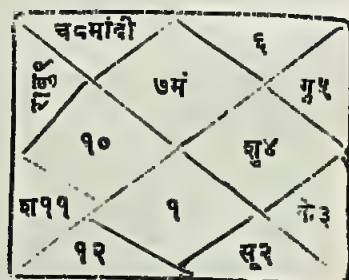 च८मांदी
६
राबु९
७मं
गु५
१०
शु४
श११
१
के३
१२
सू२